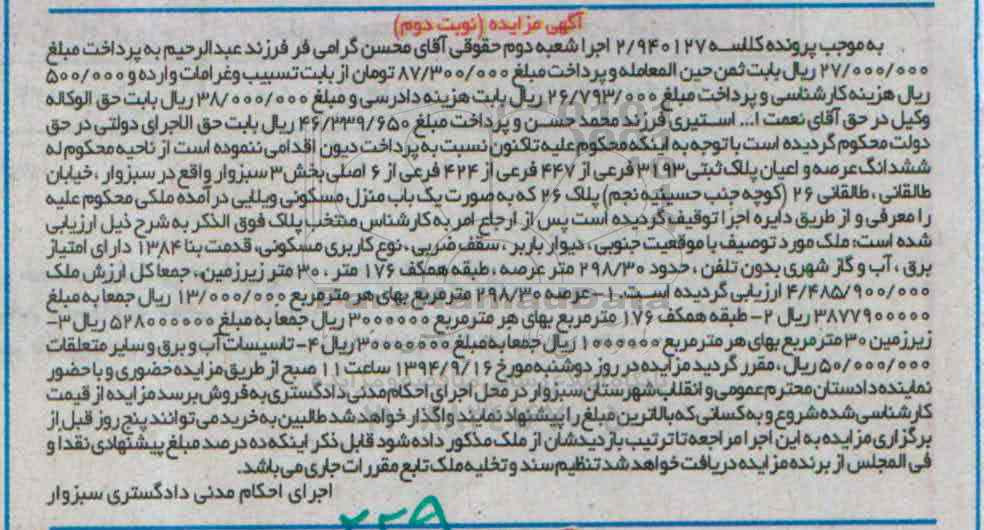 آگهی مزایده (نوبت دوم)
به موجب پرونده کلاسه ۲/۹۴۰۱۲۷ اجرا شعبه دوم حقوقی آقای محسن گرامی فر فرزند عبدالرحیم به پرداخت مبلغ
۲۷/۰۰۰/۰۰۰ ریال بابت ثمن حین المعامله و پرداخت مبلغ ۸۷/۳۰۰/۰۰۰ تومان از بابت تسبیب وغرامات وارده و ۵۰۰/۰۰۰
ریال هزینه کارشناسی و پرداخت مبلغ ۲۶/۷۹۳/۰۰۰ ریال بابت هزینه دادرسی و مبلغ ۳۸/۰۰۰/۰۰۰ ریال بابت حق الوکاله
وکیل در حق آقای نعمت ا... استیری فرزند محمد حسن و پرداخت مبلغ ۴۶/۳۳۹/۶۵۰ ریال بابت حق الاجرای دولتی در حق
دولت محکوم گردیده است با توجه به اینکه محکوم علیه تاکنون نسبت به پرداخت دیون اقدامی ننموده است از ناحیه محکوم له
ششدانگ عرصه و اعیان پلاک ثبتی ۳۱۹۳ فرعی از ۴۴۷ فرعی از ۴۲۴ فرعی از ۶ اصلی بخش ۳ سبزوار واقع در سبزوار ، خیابان
طالقانی ، طالقانی ۲۶ (کوچه جنب حسینیه نجم) پلاک ۲۶ که به صورت یک باب منزل مسکونی ویلایی در آمده ملکی محکوم علیه
را معرفی و از طریق دایره اجرا توقیف گردیده است پس از ارجاع امر به کارشناس منتخب پلاک فوق الذکر به شرح ذیل ارزیابی
شده است: ملک مورد توصیف با موقعیت جنوبی ، دیوار باربر ، سقف ضربی ، نوع کاربری مسکونی، قدمت بنا ۱۳۸۴ دارای امتیاز
برق ، آب و گاز شهری بدون تلفن ، حدود ۲۹۸/۳۰ متر عرصه ، طبقه همکف ۱۷۶ متر ، ۳۰ متر زیرزمین، جمعا کل ارزش ملک
۴/۴۸۵/۹۰۰/۰۰۰ ارزیابی گردیده است. ۱- عرصه ۲۹۸/۳۰ مترمربع بهای هر مترمربع ۱۳/۰۰۰/۰۰۰ ریال جمعا به مبلغ
۳۸۷۷۹۰۰۰۰۰ ریال ۲- طبقه همکف ۱۷۶ مترمربع بهای هر مترمربع ۳۰۰۰۰۰۰ ریال جمعا به مبلغ ۵۲۸۰۰۰۰۰۰ ریال ۳-
زیرزمین ۳۰ متر مربع بهای هر مترمربع ۱۰۰۰۰۰۰ ریال جمعا به مبلغ ۳۰۰۰۰۰۰۰ ریال ۴- تاسیسات آب و برق و سایر متعلقات
۵۰/۰۰۰/۰۰۰ ریال ، مقرر گردید مزایده در روز دوشنبه مورخ ۱۳۹۴/۹/۱۶ ساعت ۱۱ صبح از طریق مزایده حضوری و با حضور
نماینده دادستان محترم عمومی و انقلاب شهرستان سبزوار در محل اجرای احکام مدنی دادگستری به فروش برسد مزایده از قیمت
کارشناسی شده شروع و به کسانی که بالاترین مبلغ را پیشنهاد نمایند واگذار خواهد شد طالبین به خرید می توانند پنج روز قبل از
برگزاری مزایده به این اجرا مراجعه تا ترتیب بازدیدشان از ملک مذکور داده شود قابل ذکر اینکه ده درصد مبلغ پیشنهادی نقدا و
فی المجلس از برنده مزایده دریافت خواهد شد تنظیم سند و تخلیه ملک تابع مقررات جاری می باشد.
اجرای احکام مدنی دادگستری سبزوار
۲۲۹